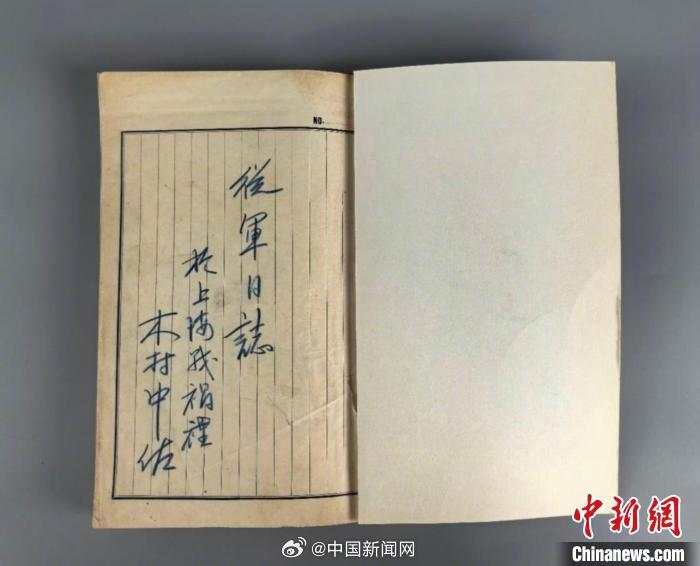 NO.
從軍日誌
於上海戦禍裡
木村中佐
@中国新闻网
中新网
Chinanews.com